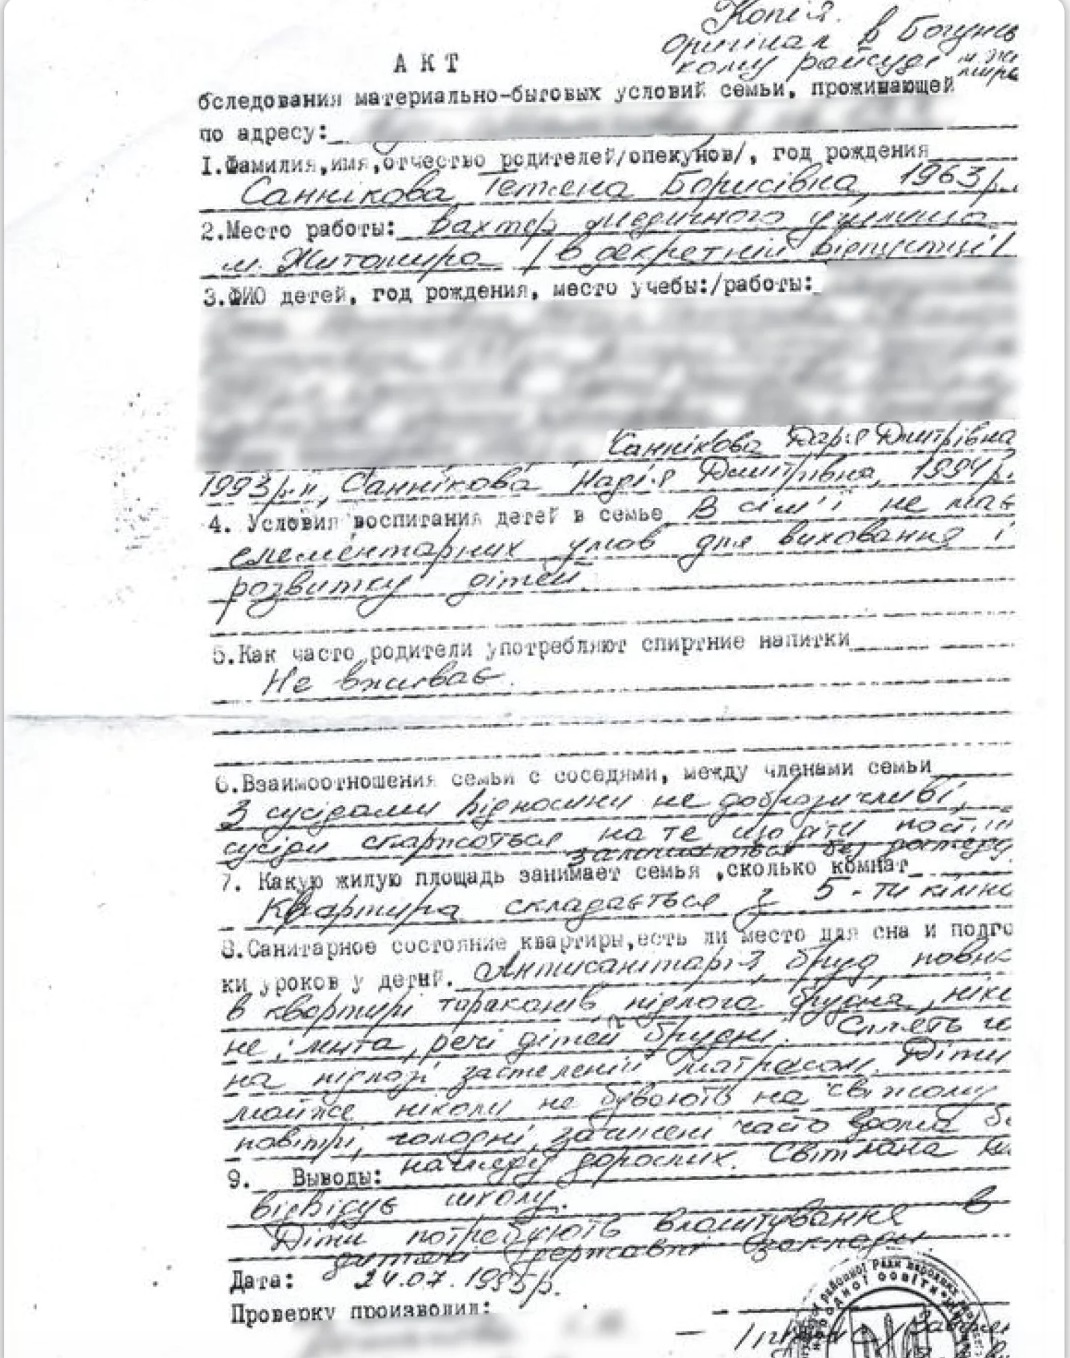 Копія.
Оригінал в Богунсь
кому райсуді м. Жи
томира
АКТ
бследования материально-бытовых условий семьи, проживающей
по адресу:
1.Фамилия,имя,отчество родителей/опекунов/, год рождения
Саннікова Тетяна Борисівна, 1963р.
2.Место работы: вахтер медичного училища
м. Житомира / в декретній відпустці/
3.ФИО детей, год рождения, место учебы:/работы:
Саннікова Дар'я Дмитрівна
1993р.н, Саннікова Надія Дмитрівна, 1994р.
4. Условия воспитания детей в семье В сім'ї не має
елементарних умов для виховання і
розвитку дітей.
5.Как часто родители употребляют спиртние напитки
Не вживає.
6.Взаимоотношения семьи с соседями, между членами семьи
З сусідами відносини не доброзичливі,
сусіди скаржаться на те що діти пост
залишаються без догляду
7. Какую жилую площадь занимает семья ,сколько комнат
Квартира складається з 5-ти кімна
8.Санитарное состояние квартиры,есть ли место для сна и подго
ки уроков у детей. Антисанітарія, бруд, повно
в квартирі тараканів, підлога брудна, ніко
не мита, речі дітей брудні. Сплять
на підлозі застеленій матрасом. Діти
майже ніколи не бувають на свіжому
повітрі, голодні, зачинені часто вдома бе
нагляду дорослих. Світлана не
9. Выводы:
відвідує школу.
Діти потребують влаштування в
дитячі державні заклади
Дата: 24.07.1995р.
Проверку произвели: